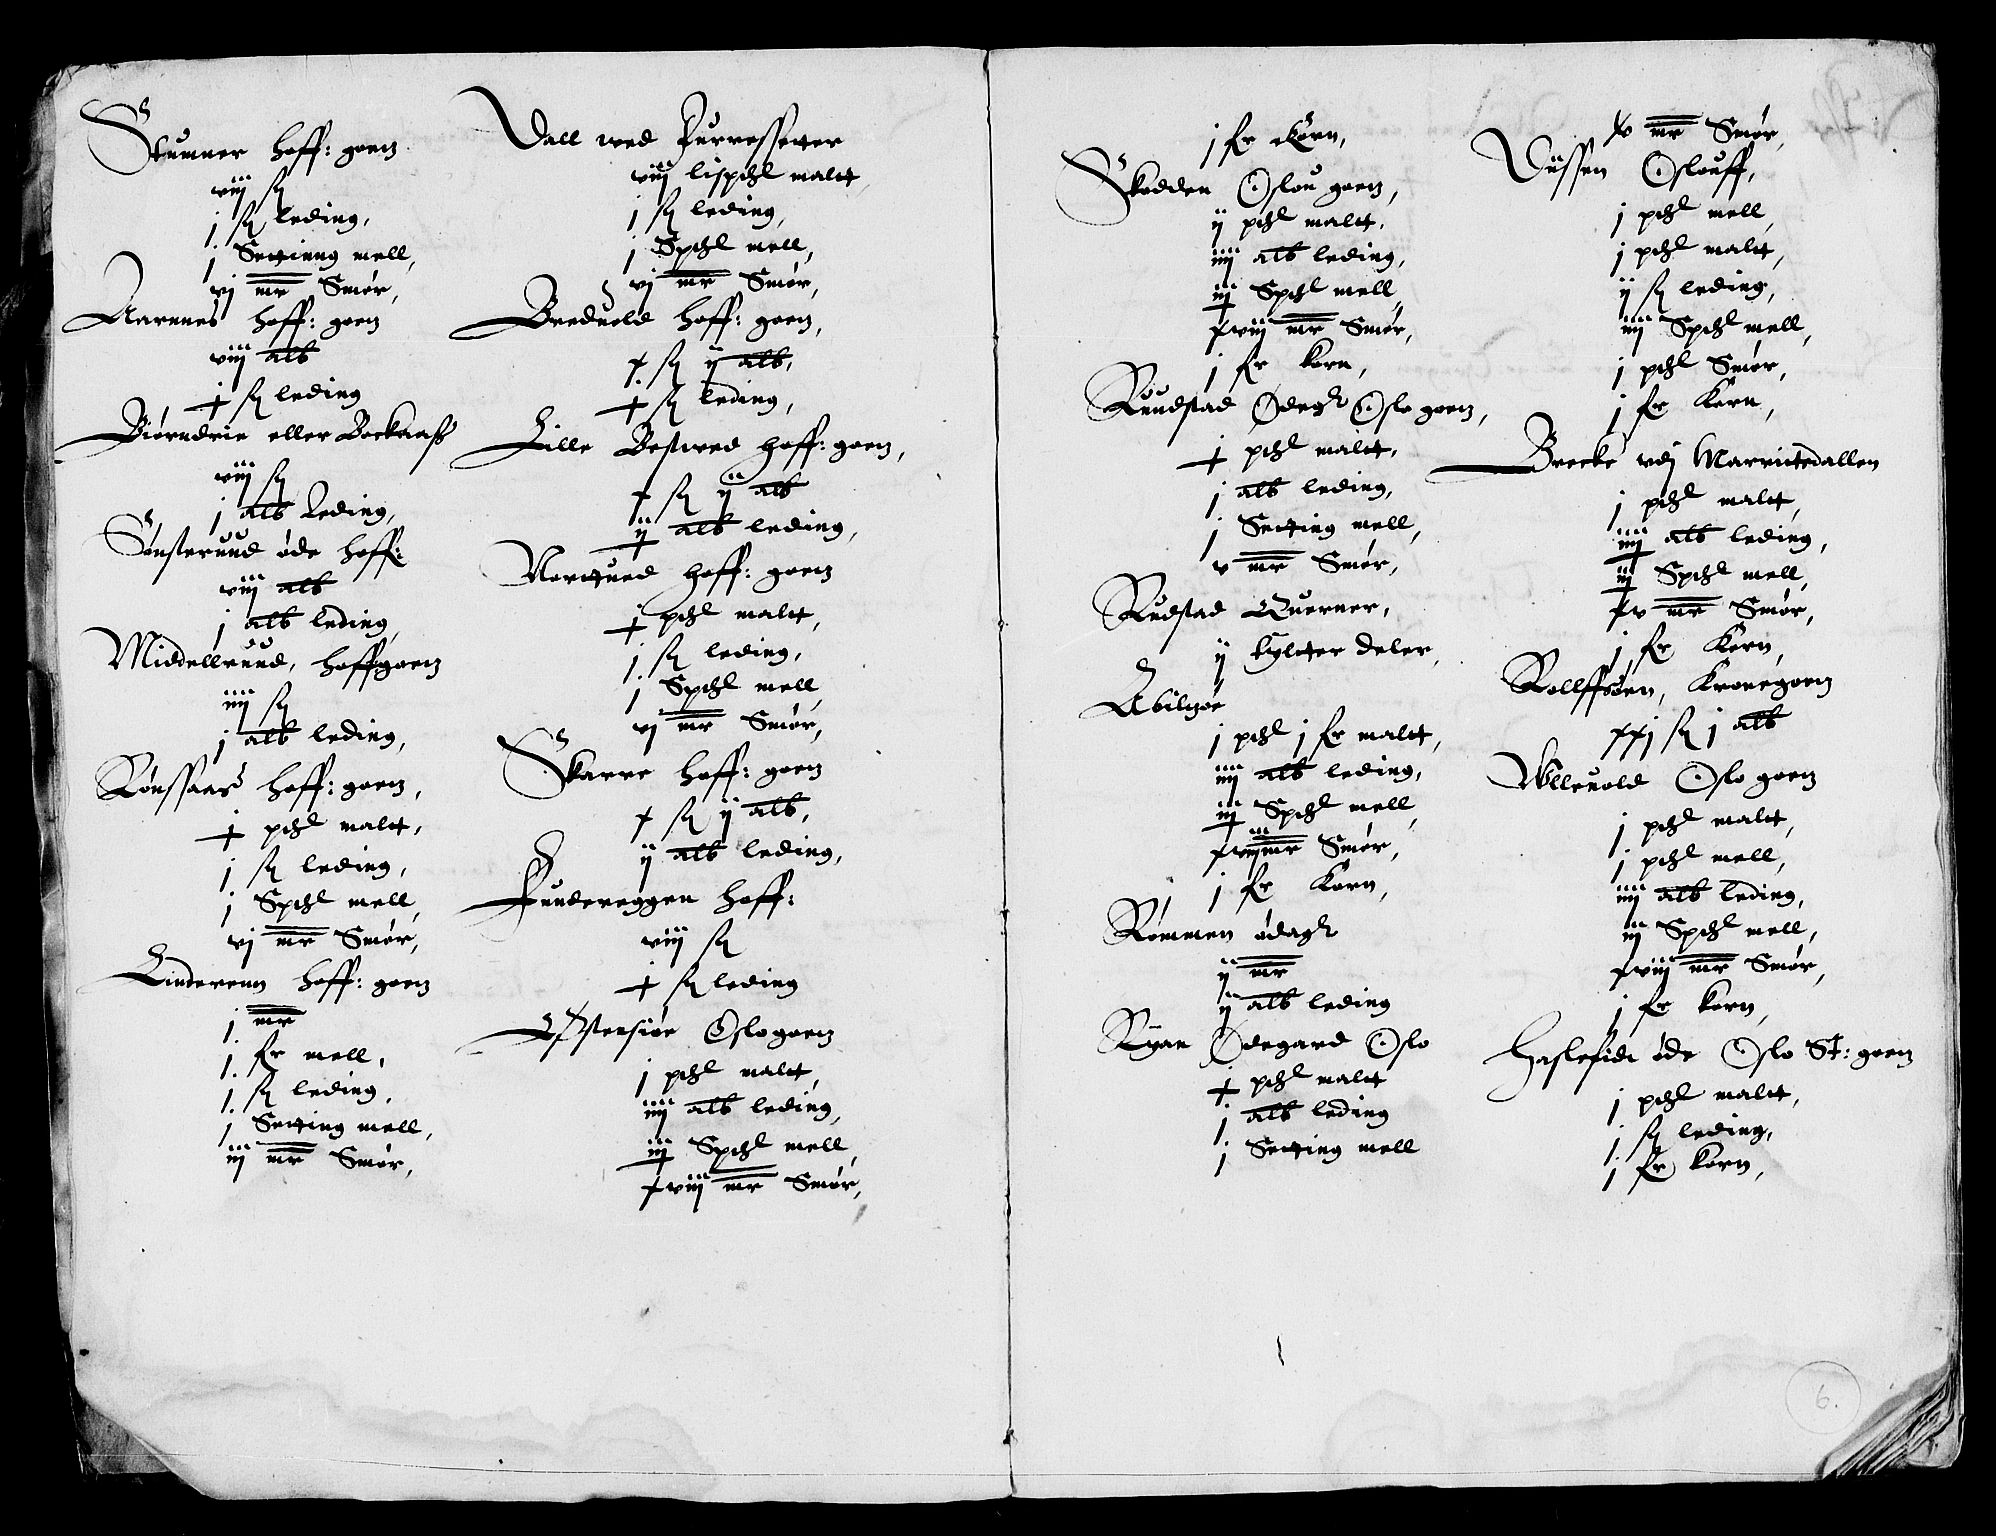 Stumner hoff: goen
viij sz
j sz leding,
j Setting mell,
vj mr Smør,
Aarnnes hoff: goen
viij alb
j sz leding
Biørndrin eller Boekaaß
viij sz
j alb Leding,
Sønsterund øde hoff:
viij alb
j alb leding,
Middellruud, hoffgoen
iiij sz
j alb leding,
Rønssaas hoff: goen,
j pdl malt,
j sz leding,
j Spdl mell,
vj mr Smør,
Linderenn hoff: goen
j mr
j fr mell,
j sz leding,
j Setting mell,
iij mr Smør,
Vall wed Furressetter
viij lispdl malt,
j sz leding,
j Spdl mell,
vj mr Smør,
Breduold hoff: goen,
x sz ij alb,
j sz leding,
Lille Bestwed hoff: goen,
x sz ij alb
ij alb leding,
Nortued hoff: goen
j pdl malt,
j sz leding,
j Spdl mell
vj mr Smør,
Skarre hoff: goen
x sz ij alb,
ij alb leding,
Fundereggen hoff:
viij sz
j sz leding
Østensiøe Oslogoen
j pdl malt,
iiij alb leding,
iij Spdl mell,
xviij mr Smør,
j fr Korn,
Skodden Oslou goen,
ij pdl malt,
iiij alb leding,
iij Spdl mell,
xviij mr Smør,
j fr korn,
Ruudstad Ødegl Oslo goen,
j pdl malt,
j alb leding,
j Setting mell,
v mr Smør,
Rudstad Querner,
ij tylter deler,
Abilzøe
j pdl j fr malt,
iiij alb leding,
iij Spdl mell,
xviij mr Smør,
j fr Korn,
Rømmen ødegl
ij mr
ij alb leding
Ryan Ødegard Oslo
j pdl malt
j alb leding
j Setting mell
xv mr Smør,
Vüssen Oslouff,
j pdl mell,
j pdl malt,
ij sz leding,
iiij Spdl mell,
j pdl Smør,
j fr Korn,
Brecke vdj Marritedallen
j pdl malt,
iiij alb leding,
iij Spdl mell,
xv mr Smør,
j fr Korn,
Rollffsøen, Kronegoen
xxj sz j alb
Wlleuold Oslo goen
j pdl malt,
j pdl mell,
iiij alb leding,
iij Spdl mell,
xviij mr Smør,
j fr korn,
Haslefide øde Oslo St: goen
j pdl malt,
j sz leding,
j fr korn,
6.